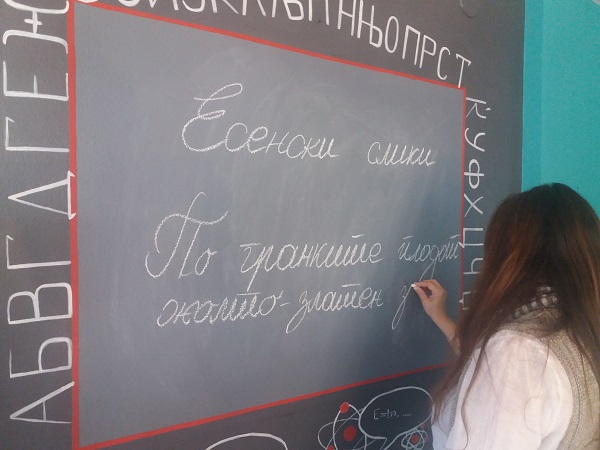 А Б В Г Д Ѓ Е Ж
Њ О П Р С Т
Ќ У Ф Х Ц Ч
Есенски слики
По гранките плодот
жолто-златен